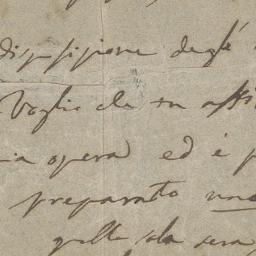 disposizione degl'
Voglio che tu assi
ia opera ed è p
preparato una
quella sola sera